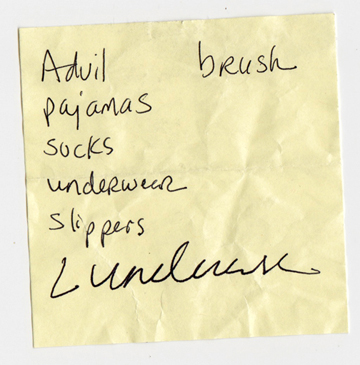 Advil brush
pajamas
socks
underwear
slippers